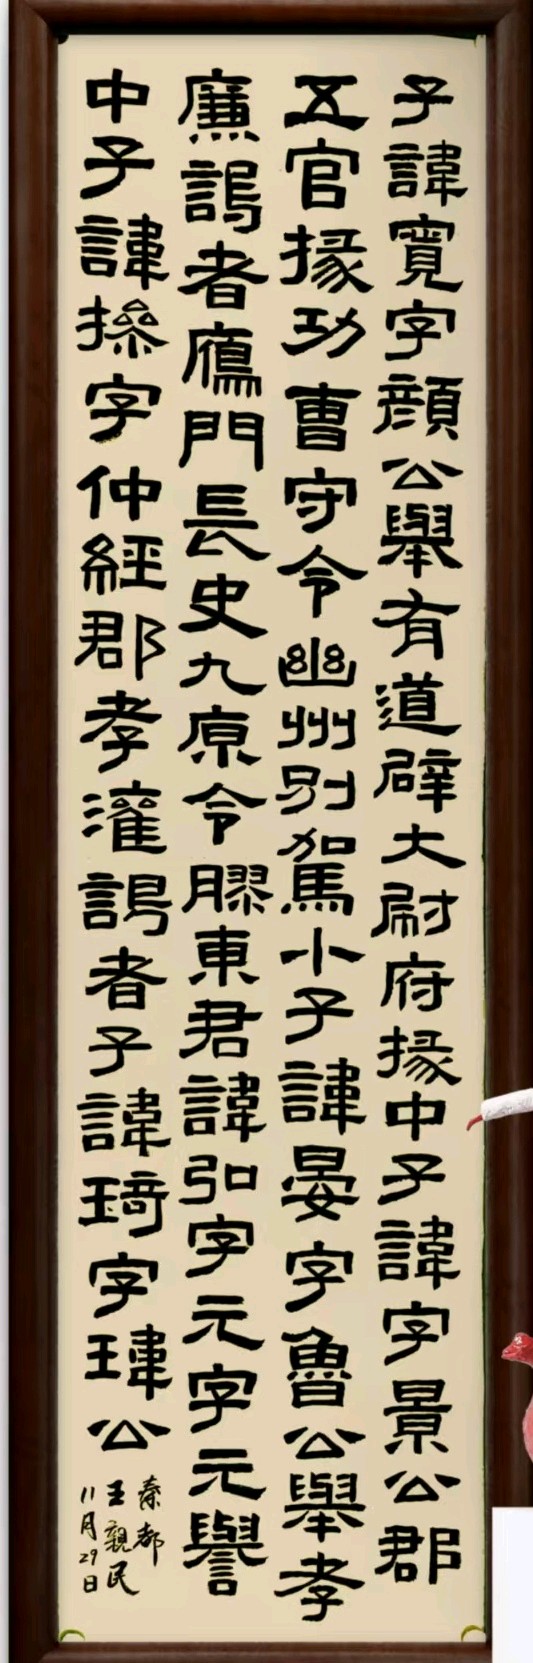 子諱寬字顏公舉有道辟大尉府掾中子諱字景公郡
五官掾功曹守令幽州別駕小子諱晏字魯公舉孝
廉謁者鴈門長史九原令膠東君諱弘字元字元譽
中子諱操字仲經郡孝灌謁者子諱琦字瑋公
秦都
王親民
11月29日